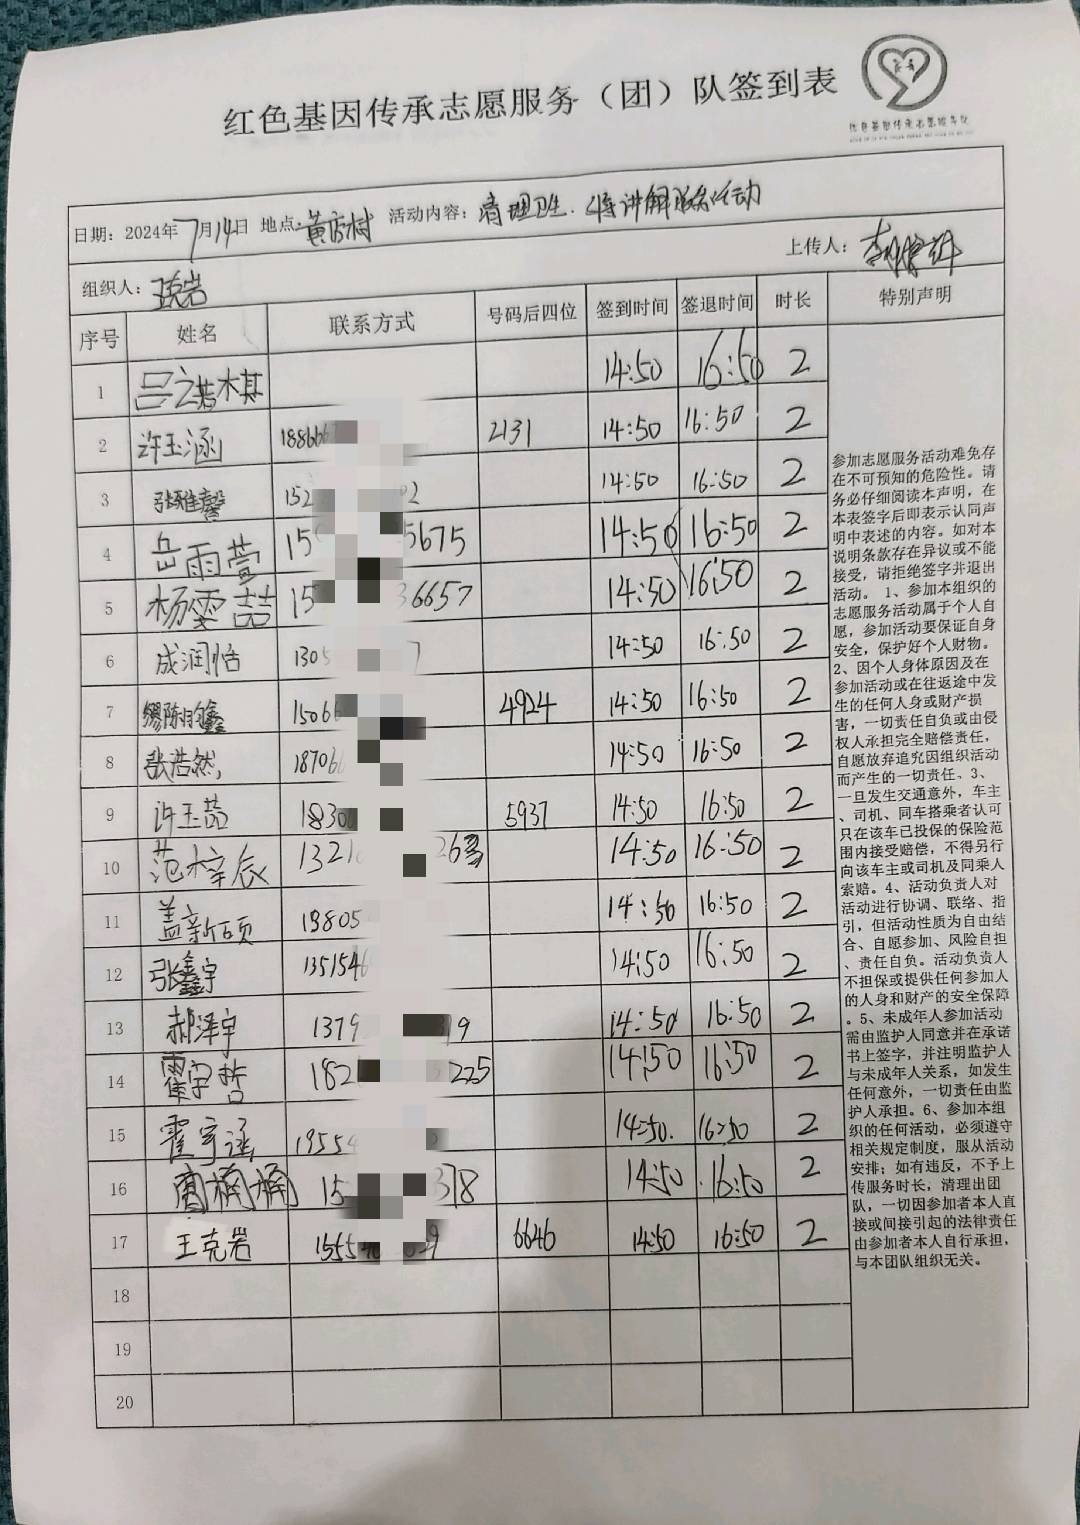 红色基因传承志愿服务（团）队签到表
日期：2024年7月14日 地点: 黄店村 活动内容：清理卫生.
组织人： 上传人：
序号 姓名 联系方式 号码后四位 签到时间 签退时间 时长 特别声明
1 14:50 16:50 2
2 许玉涵 188666 2131 14:50 16:50 2
3 张雅馨 152 02 14:50 16:50 2
4 岳雨萱 15 5675 14:50 16:50 2
5 杨雯喆 15 36657 14:50 16:50 2
6 成润恬 1305 7 14:50 16:50 2
7 15066 4924 14:50 16:50 2
8 张浩然, 18706 14:50 16:50 2
9 许玉茹 18300 5937 14:50 16:50 2
10 范梓辰 1321 26 14:50 16:50 2
11 盖新硕 19805 14:50 16:50 2
12 张鑫宇 1351546 14:50 16:50 2
13 郝泽宇 1379 19 14:50 16:50 2
14 霍宇哲 182 5225 14:50 16:50 2
15 霍宇涵 19554 14:50. 16:50 2
16 15 378 14:50 16:50 2
17 王克岩 1555 29 6646 14:50 16:50 2
18
19
20
参加志愿服务活动难免存
在不可预知的危险性。请
务必仔细阅读本声明，在
本表签字后即表示认同声
明中表述的内容。如对本
说明条款存在异议或不能
接受，请拒绝签字并退出
活动。 1、参加本组织的
志愿服务活动属于个人自
愿，参加活动要保证自身
安全，保护好个人财物。
2、因个人身体原因及在
参加活动或在往返途中发
生的任何人身或财产损
害，一切责任自负或由侵
权人承担完全赔偿责任，
自愿放弃追究因组织活动
而产生的一切责任。3、
一旦发生交通意外，车主
、司机、同车搭乘者认可
只在该车已投保的保险范
围内接受赔偿，不得另行
向该车主或司机及同乘人
索赔。4、活动负责人对
活动进行协调、联络、指
引，但活动性质为自由结
合、自愿参加、风险自担
、责任自负。活动负责人
不担保或提供任何参加人
的人身和财产的安全保障
。5、未成年人参加活动
需由监护人同意并在承诺
书上签字，并注明监护人
与未成年人关系，如发生
任何意外，一切责任由监
护人承担。6、参加本组
织的任何活动，必须遵守
相关规定制度，服从活动
安排；如有违反，不予上
传服务时长，清理出团
队，一切因参加者本人直
接或间接引起的法律责任
由参加者本人自行承担，
与本团队组织无关。